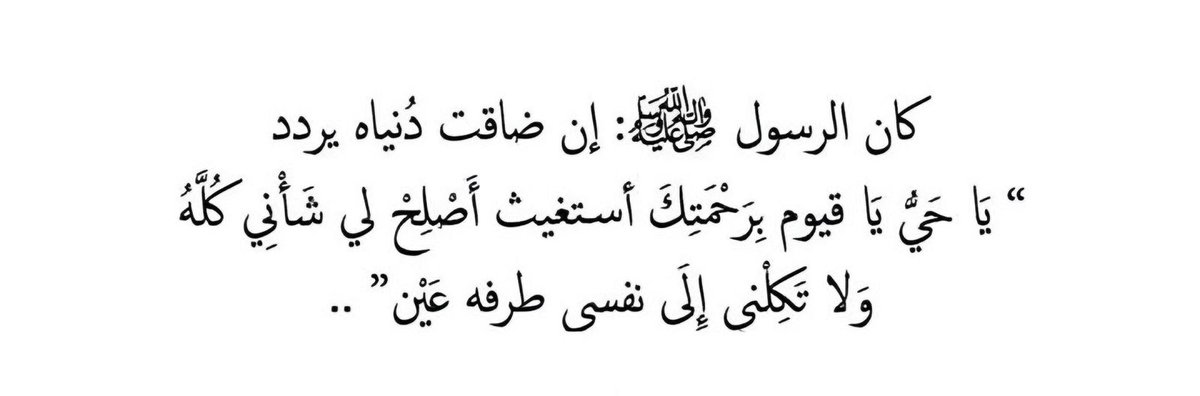 كان الرسول ﷺ: إن ضاقت دُنياه يردد
“ يَا حَيُّ يَا قيوم بِرَحْمَتِكَ أستغيث أَصْلِحْ لي شَأْنِي كُلَّهُ
وَلا تَكِلْنى إِلَى نفسى طرفه عَيْن” ..